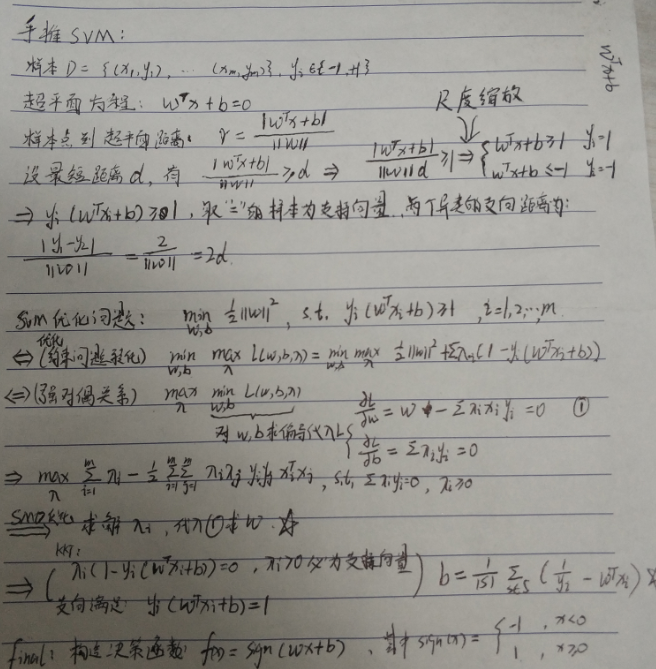 手推SVM:
样本D = {(x₁,y₁), ... (xₘ,yₘ)}, yᵢ∈{-1,+1}
wᵀx+b
超平面方程: wᵀx+b=0
尺度缩放
样本点到超平面距离: r = |wᵀx+b| / ||w||
设最短距离d, 有 |wᵀx+b| / ||w|| ≥ d ⇒ |wᵀx+b| / ||w||d ≥ 1 ⇒ { wᵀx+b≥1 yᵢ=1
wᵀx+b≤-1 yᵢ=-1
⇒ yᵢ(wᵀx+b)≥1, 取"="的样本为支持向量, 两个异类的支向距离为:
|y₁-y₂| / ||w|| = 2 / ||w|| = 2d
SVM优化问题: min_{w,b} ½||w||², s.t. yᵢ(wᵀxᵢ+b)≥1, i=1,2,…,m
优化
⇔ (约束问题软化) min_{w,b} max_λ L(w,b,λ) = min_{w,b} max_λ ½||w||²+Σλᵢ(1-yᵢ(wᵀxᵢ+b))
⇔ (强对偶关系) max_λ min_{w,b} L(w,b,λ) ∂L/∂w = w - Σλᵢxᵢyᵢ = 0 ①
对w,b求偏导代入L { ∂L/∂b = Σλᵢyᵢ = 0
⇒ max_λ Σᵢ₌₁ᵐ λᵢ - ½ Σᵢ₌₁ᵐ Σⱼ₌₁ᵐ λᵢλⱼyᵢyⱼxᵢᵀxⱼ, s.t. Σλᵢyᵢ=0, λᵢ≥0
SMO优化 ⇒ 求解λᵢ, 代入①求w. ☆
KKT:
⇒ ( λᵢ(1-yᵢ(wᵀxᵢ+b))=0, λᵢ>0必为支持向量 ) b = 1/|S| Σ_{s∈S} (1/yᵢ - wᵀxᵢ) ☆
支向满足 yᵢ(wᵀxᵢ+b)=1
final: 构造决策函数 f(x) = sign(wx+b), 其中sign(x) = { -1, x<0
1, x≥0